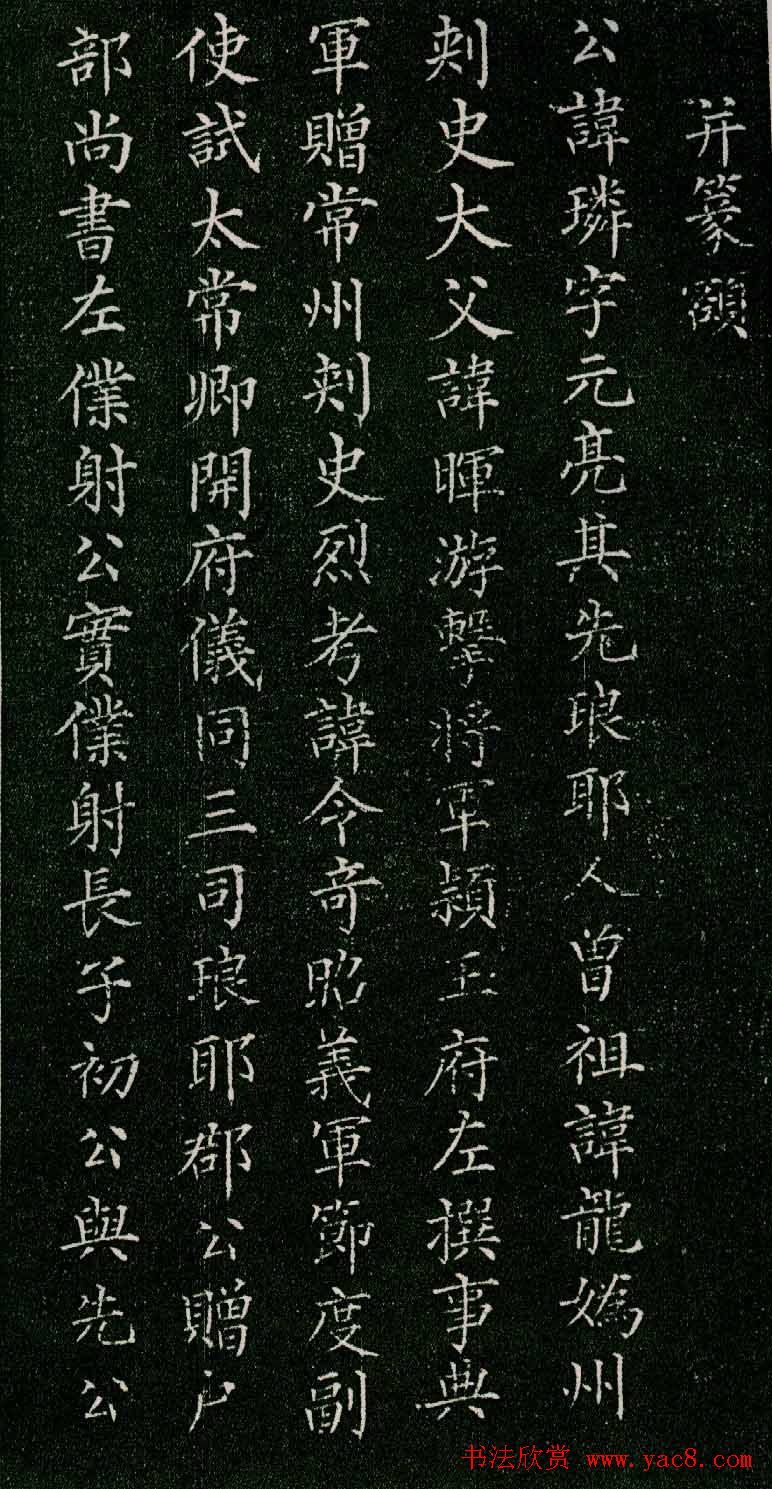 并篆額
公諱璘字元亮其先琅耶人曾祖諱龍嬀州
刾史大父諱暉游擊將軍潁王府左撰事典
軍贈常州刾史烈考諱令奇昭義軍節度副
使試太常卿開府儀同三司琅耶郡公贈户
部尚書左僕射公實僕射長子初公與先公
书法欣赏 www.yac8.com